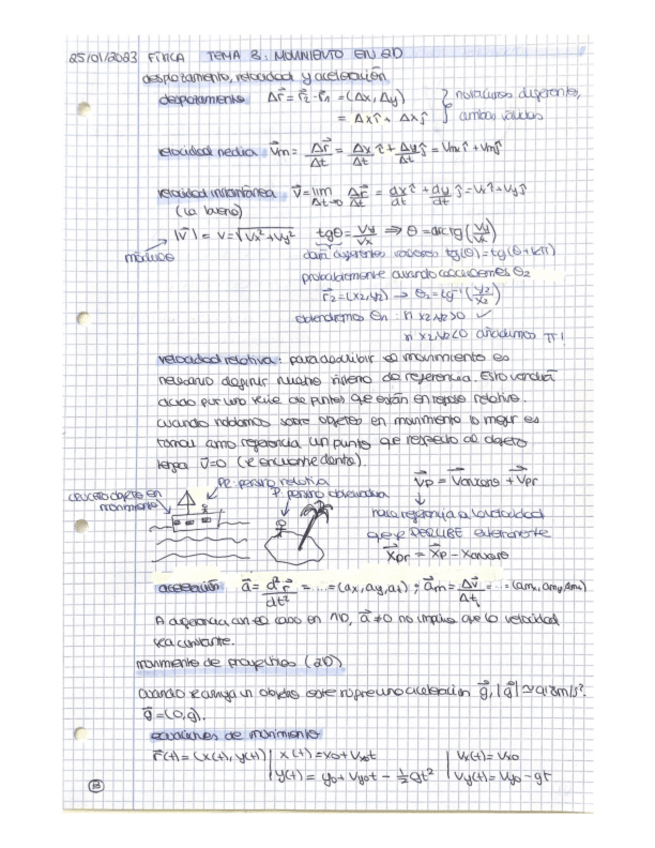 25/01/2023 FÍSICA TEMA 3: MOVIMIENTO EN 2D
desplazamiento, velocidad y aceleración
desplazamiento Δr⃗ = r⃗₂ - r⃗₁ = (Δx, Δy) } notaciones diferente,
= Δx î + Δy ĵ } ambas válidas
velocidad media v⃗m = Δr⃗/Δt = Δx/Δt î + Δy/Δt ĵ = Vmx î + Vmy ĵ
velocidad instantánea v⃗ = lim Δt→0 Δr⃗/Δt = dx/dt î + dy/dt ĵ = Vx î + Vy ĵ
(la buena)
|v⃗| = v = √(Vx² + Vy²) tgθ = Vy/Vx ⇒ θ = arctg(Vy/Vx)
módulo
dan diferentes valores tg(θ) = tg(θ + kπ)
probablemente cuando calculemos θ₂
r⃗₂ = (x₂, y₂) → θ₂ = tg⁻¹(y₂/x₂)
obtendremos θ₁: si x₂ y₂ > 0 ✓
si x₂ y₂ < 0 añadimos π!
velocidad relativa: para describir el movimiento es
necesario definir nuestro sistema de referencia. Esto vendrá
dado por una serie de puntos que están en reposo relativo.
cuando notamos sobre objetos en movimiento lo mejor es
tomar como referencia un punto que respecto al objeto
tenga v⃗ = 0 (se encuentre dentro).
PR: persona relativa
P: persona observadora
crucero objeto en
movimiento
V⃗p = V⃗ + V⃗pr
hace referencia a la velocidad
que se PERCIBE externamente
X⃗pr = X⃗p -
aceleración a⃗ = d²r⃗/dt² = ... = (ax, ay, az) ; a⃗m = Δv⃗/Δt = ... = (amx, amy, amz)
A diferencia con el caso en 1D, a⃗ ≠ 0 no implica que la velocidad
sea constante.
movimiento de proyectiles (2D)
cuando se arroja un objeto este sufre una aceleración g⃗, |g⃗| ≃ 9,8 m/s².
g⃗ = (0, g).
ecuaciones de movimiento
r⃗(t) = (x(t), y(t)) | x(t) = x₀ + Vx₀t | Vx(t) = Vx₀
| y(t) = y₀ + Vy₀t - ½gt² | Vy(t) = Vy₀ - gt